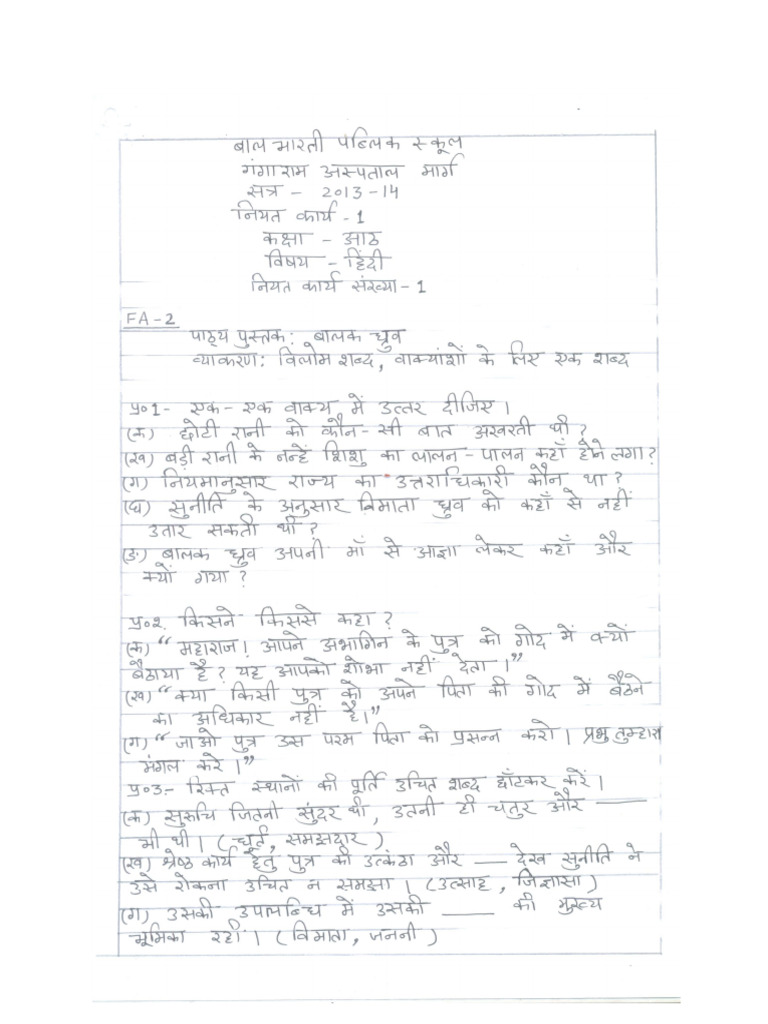 बाल भारती पब्लिक स्कूल
गंगाराम अस्पताल मार्ग
सत्र - 2013-14
नियत कार्य - 1
कक्षा - आठ
विषय - हिंदी
नियत कार्य संख्या - 1
FA-2
पाठ्य पुस्तक: बालक ध्रुव
व्याकरण: विलोम शब्द, वाक्यांशों के लिए एक शब्द
प्र०1- एक-एक वाक्य में उत्तर दीजिए।
(क) छोटी रानी को कौन-सी बात अखरती थी?
(ख) बड़ी रानी के नन्हें शिशु का लालन-पालन कहाँ होने लगा?
(ग) नियमानुसार राज्य का उत्तराधिकारी कौन था?
(घ) सुनीति के अनुसार विमाता ध्रुव को कहाँ से नहीं
उतार सकती थी?
(ङ) बालक ध्रुव अपनी माँ से आज्ञा लेकर कहाँ और
क्यों गया?
प्र०2. किसने किससे कहा?
(क) “महाराज! आपने अभागिन के पुत्र को गोद में क्यों
बैठाया है? यह आपको शोभा नहीं देता।”
(ख) “क्या किसी पुत्र को अपने पिता की गोद में बैठने
का अधिकार नहीं है।”
(ग) “जाओ पुत्र उस परम पिता को प्रसन्न करो। प्रभु तुम्हारा
मंगल करे।”
प्र०3:- रिक्त स्थानों की पूर्ति उचित शब्द छाँटकर करें।
(क) सुरुचि जितनी सुंदर थी, उतनी ही चतुर और ____
भी थी। (धूर्त, समझदार)
(ख) श्रेष्ठ कार्य हेतु पुत्र की उत्कंठा और ____ देख सुनीति ने
उसे रोकना उचित न समझा। (उत्साह, जिज्ञासा)
(ग) उसकी उपलब्धि में उसकी ____ की मुख्य
भूमिका रही। (विमाता, जननी)